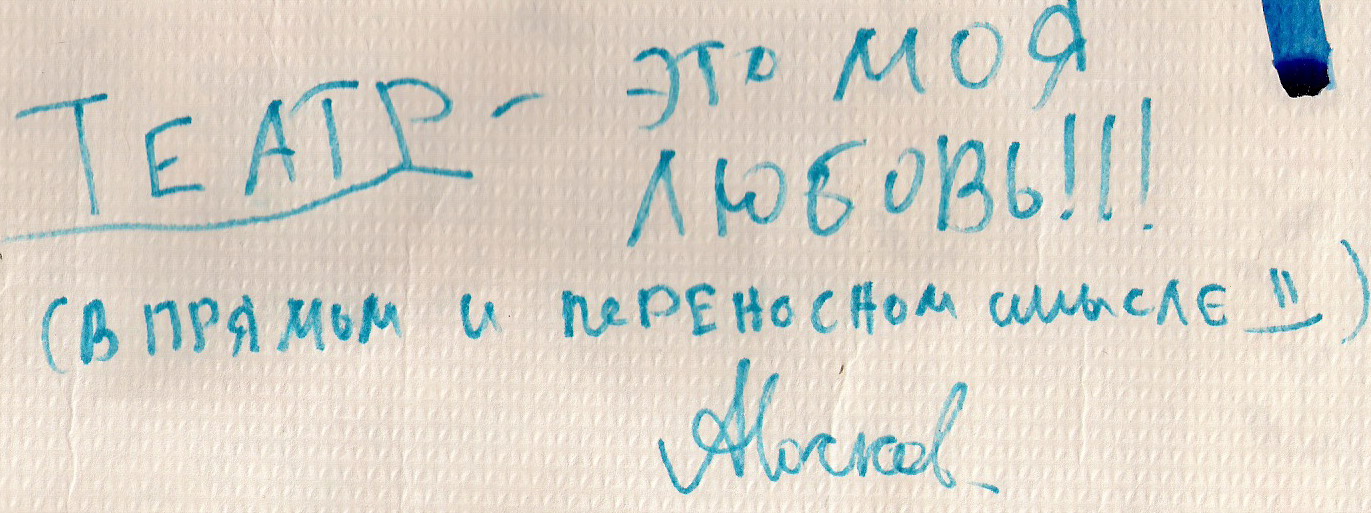 ТЕАТР - ЭТО МОЯ
ЛЮБОВЬ!!!
(В ПРЯМОМ и ПЕРЕНОСНОМ смысле)